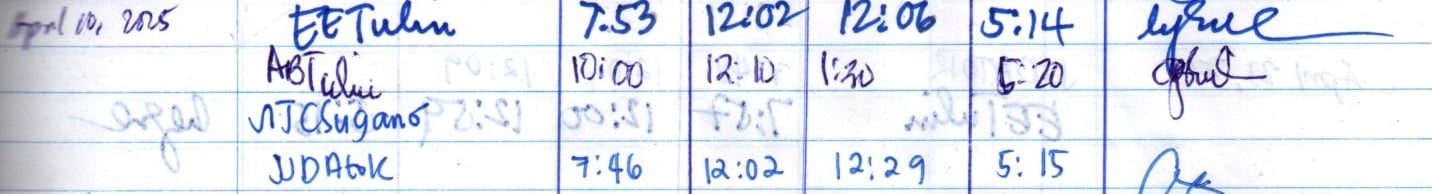 April 10, 2025 EETulin 7:53 12:02 12:06 5:14
ABTulin 10:00 12:10 1:30 5:20
NJCSugano
JJDAtok 7:46 12:02 12:29 5:15